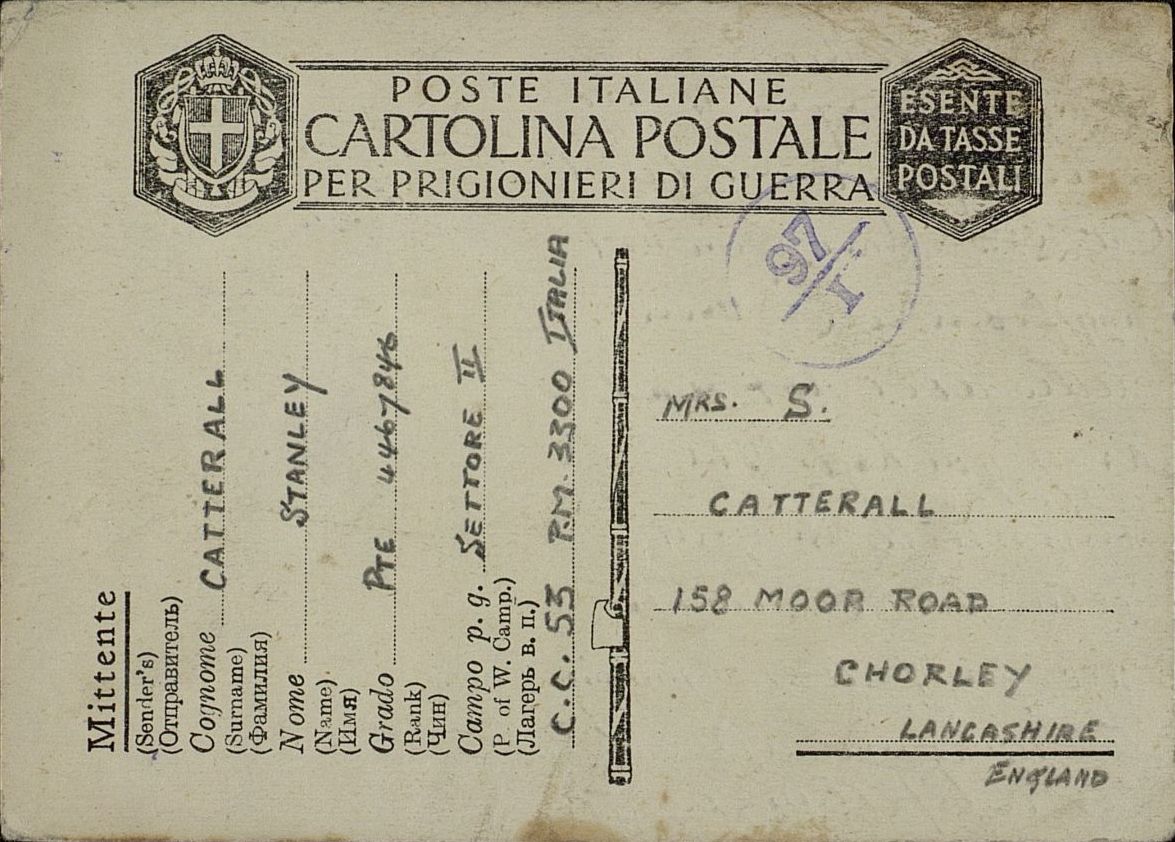 POSTE ITALIANE
CARTOLINA POSTALE
PER PRIGIONIERI DI GUERRA
ESENTE
DA TASSE
POSTALI
97/I
Mittente
(Sender's)
(Отправитель)
Cognome CATTERALL
(Surname)
(Фамилия)
Nome STANLEY
(Name)
(Имя)
Grado PTE 4467846
(Rank)
(Чин)
Campo p. g. SETTORE II
(P. of W. Camp.)
(Лагерь в. п.)
C.C. 53 P.M. 3300 ITALIA
MRS. S.
CATTERALL
158 MOOR ROAD
CHORLEY
LANCASHIRE
ENGLAND